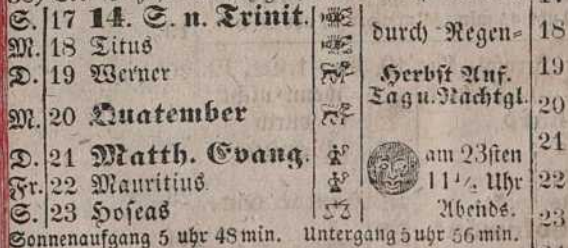 S. 17 14. S. n. Trinit. durch Regen= 18
M. 18 Titus
D. 19 Werner Herbst Anf. 19
Tag u. Nachtgl.
M. 20 Quatember 20
D. 21 Matth. Evang. am 23sten 21
Fr. 22 Mauritius 11½ Uhr 22
S. 23 Hoseas Abends. 23
Sonnenaufgang 5 uhr 48 min. Untergang 5 uhr 56 min.